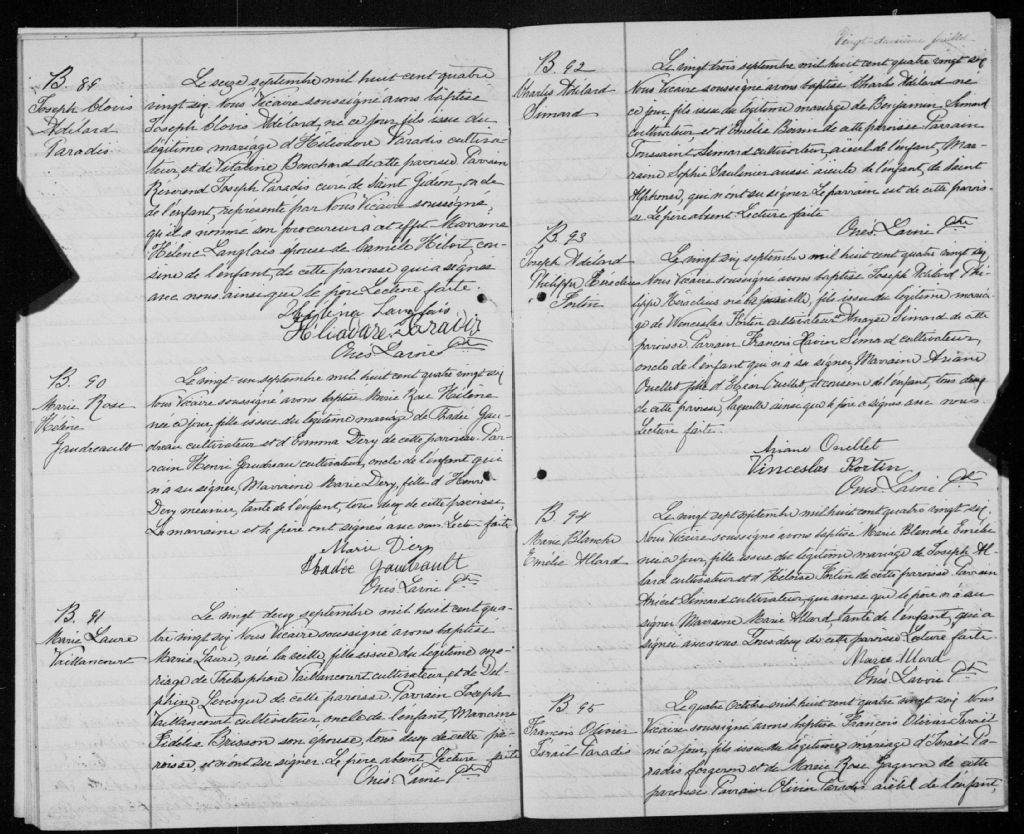 B. 89
Joseph Clovis
Adélard
Paradis
Le seize septembre mil huit cent quatre
vingt six, nous Vicaire soussigné avons baptisé
Joseph Clovis Adélard, né ce jour, fils issu du
légitime mariage d'Héliodore Paradis cultiva-
teur, et de Vitaline Bouchard de cette paroisse Parrain
Révérend Joseph Paradis curé de Saint Gédéon, oncle
de l'enfant, représenté par Nous Vicaire soussigné,
qu'il a nommé son procureur à cet effet Marraine
Hélène Langlais épouse de Camille Hébert, cou-
sine de l'enfant, de cette paroisse qui a signé
avec nous ainsi que le père Lecture faite.
Héliodore Paradis
Onés. Lavoie Ptre
B. 90
Marie Rose
Hélène
Gaudreault
Le vingt-un septembre mil huit cent quatre vingt six
Nous Vicaire soussigné avons baptisé Marie Rose Hélène
née ce jour, fille issue du légitime mariage de Thadée Gau-
dreau cultivateur et d'Emma Dery de cette paroisse. Par-
rain Henri Gaudreau cultivateur, oncle de l'enfant qui
n'a su signer, Marraine Marie Dery, fille d'Henri
Dery meunier, tante de l'enfant, tous deux de cette paroisse.
La marraine et le père ont signés avec nous Lecture faite
Marie Dery
Thadée Gaudrault
Onés. Lavoie Ptre
B. 91
Marie Laure
Vaillancourt
Le vingt deux septembre mil huit cent qua-
tre vingt six Nous Vicaire soussigné avons baptisé
Marie Laure, née la veille, fille issue du légitime ma-
riage de Thélesphore Vaillancourt cultivateur et de Del-
phine Levesque de cette paroisse Parrain Joseph
Vaillancourt cultivateur, oncle de l'enfant, Marraine
Fidélis Brisson son épouse, tous deux de cette pa-
roisse, et n'ont su signer. Le père absent, Lecture faite
Onés. Lavoie Ptre
Vingt-deuxième feuillet
B. 92
Charles Adélard
Simard
Le vingt trois septembre mil huit cent quatre vingt six
Nous Vicaire soussigné avons baptisé Charles Adélard né
ce jour, fils issu du légitime mariage de Benjamin Simard
cultivateur et d'Amélie de cette paroisse Parrain
Toussaint Simard cultivateur, aïeul de l'enfant, Mar-
raine Sophie Saulnier aussi aïeule de l'enfant, de Saint
Alphonse, qui n'ont su signer. Le parrain est de cette parois-
se. Le père absent. Lecture faite
Onés. Lavoie Ptre
B. 93
Joseph Adélard
Philippe Héraclius
Fortin
Le vingt six septembre mil huit cent quatre vingt six
Nous Vicaire soussigné avons baptisé Joseph Adélard Phi-
lippe Héraclius né la veille, fils issu du légitime maria-
ge de Wenceslas Fortin cultivateur Simard de cette
paroisse Parrain François Xavier Simard cultivateur,
oncle de l'enfant qui n'a su signer, Marraine Ariane
Ouellet, fille d'Ouellet, et cousine de l'enfant, tous deux
de cette paroisse, laquelle ainsi que le père a signé avec nous.
Lecture faite.
Ariane Ouellet
Vinceslas Fortin
Onés. Lavoie Ptre
B. 94
Marie Blanche
Emélie Allard
Le vingt sept septembre mil huit cent quatre vingt six,
Nous Vicaire soussigné avons baptisé Marie Blanche Emélie
née ce jour, fille issue du légitime mariage de Joseph Al-
lard cultivateur et d'Héloïse Fortin de cette paroisse. Parrain
Anicet Simard cultivateur, qui ainsi que le père n'a su
signer Marraine Marie Allard, tante de l'enfant, qui a
signé avec nous. Tous deux de cette paroisse Lecture faite.
Marie Allard
Onés. Lavoie Ptre
B. 95
François Olivier
Israël Paradis
Le quatre Octobre mil huit cent quatre vingt six, Nous
Vicaire soussigné avons baptisé François Olivier Israël
né ce jour, fils issu du légitime mariage d'Israël Pa-
radis forgeron et de Marie Rose Gagnon de cette
paroisse Parrain Olivier Paradis aïeul de l'enfant,